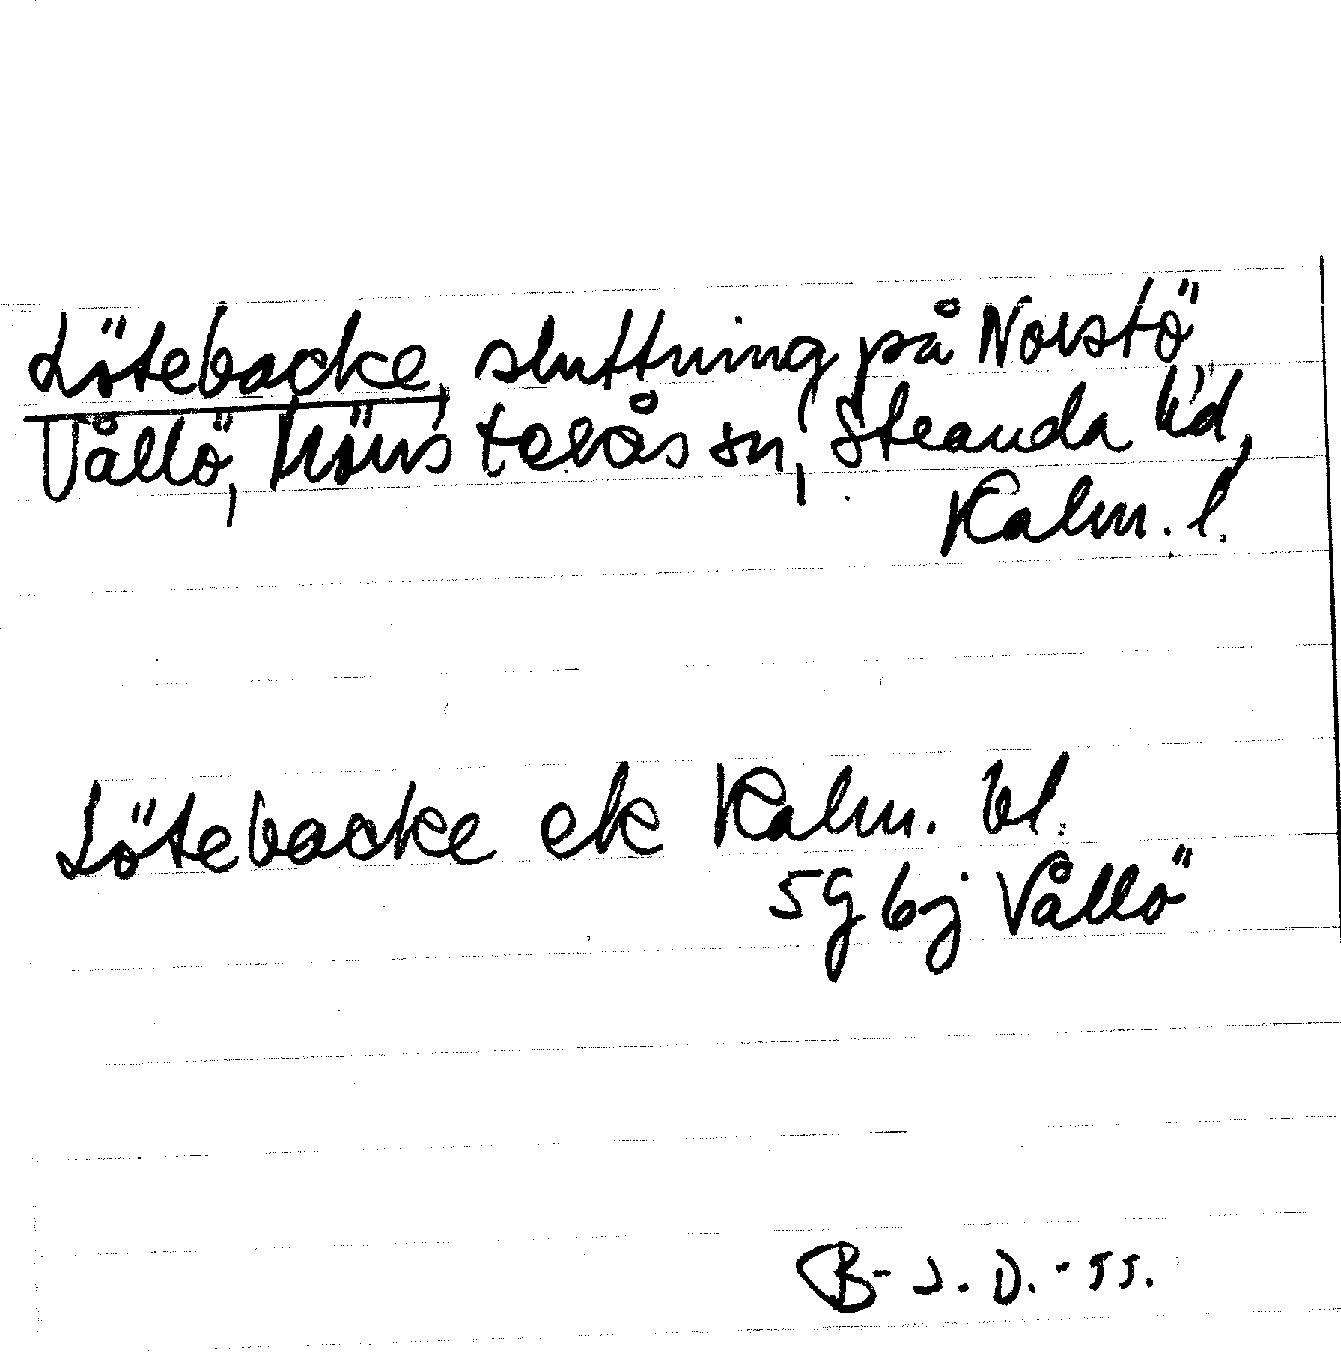 Lötebacke, sluttning på Norstö
Vållö, Döderhults sn, Stranda hd,
Kalm. l.
Lötebacke ek Kalm. bl.
5g bj Vållö
B-J. D. -55.